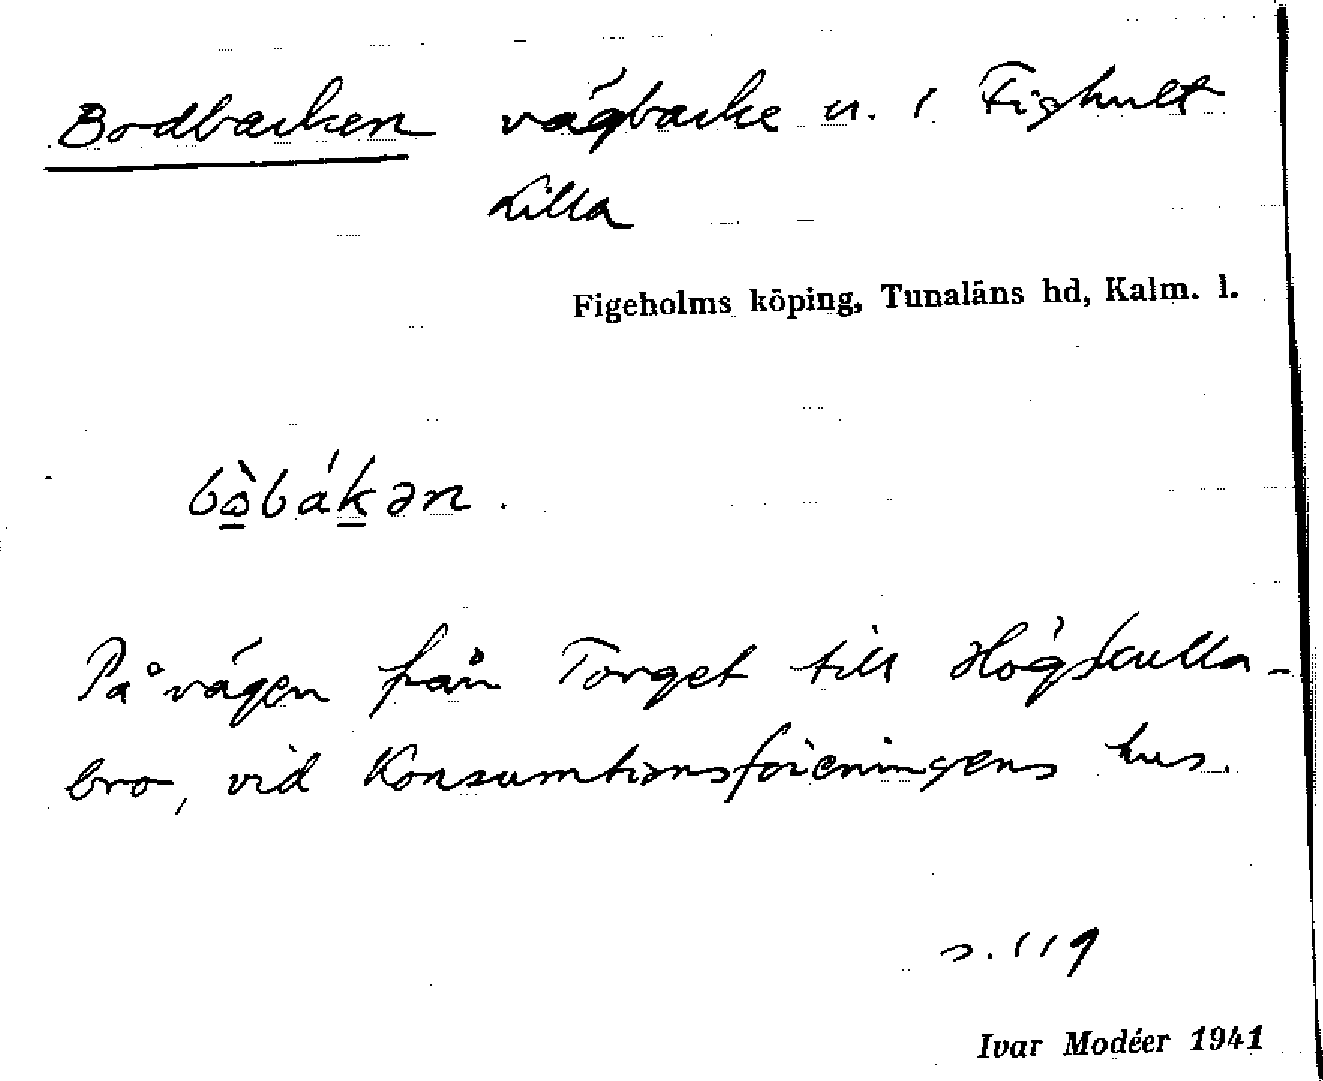 Bodbacken vägbacke u. 1 Fighult
Lilla
Figeholms köping, Tunaläns hd, Kalm. l.
bò̠bák̠ən.
På vägen från Torget till Högskulla-
bro, vid Konsumtionsföreningens hus.
s. 119
Ivar Modéer 1941